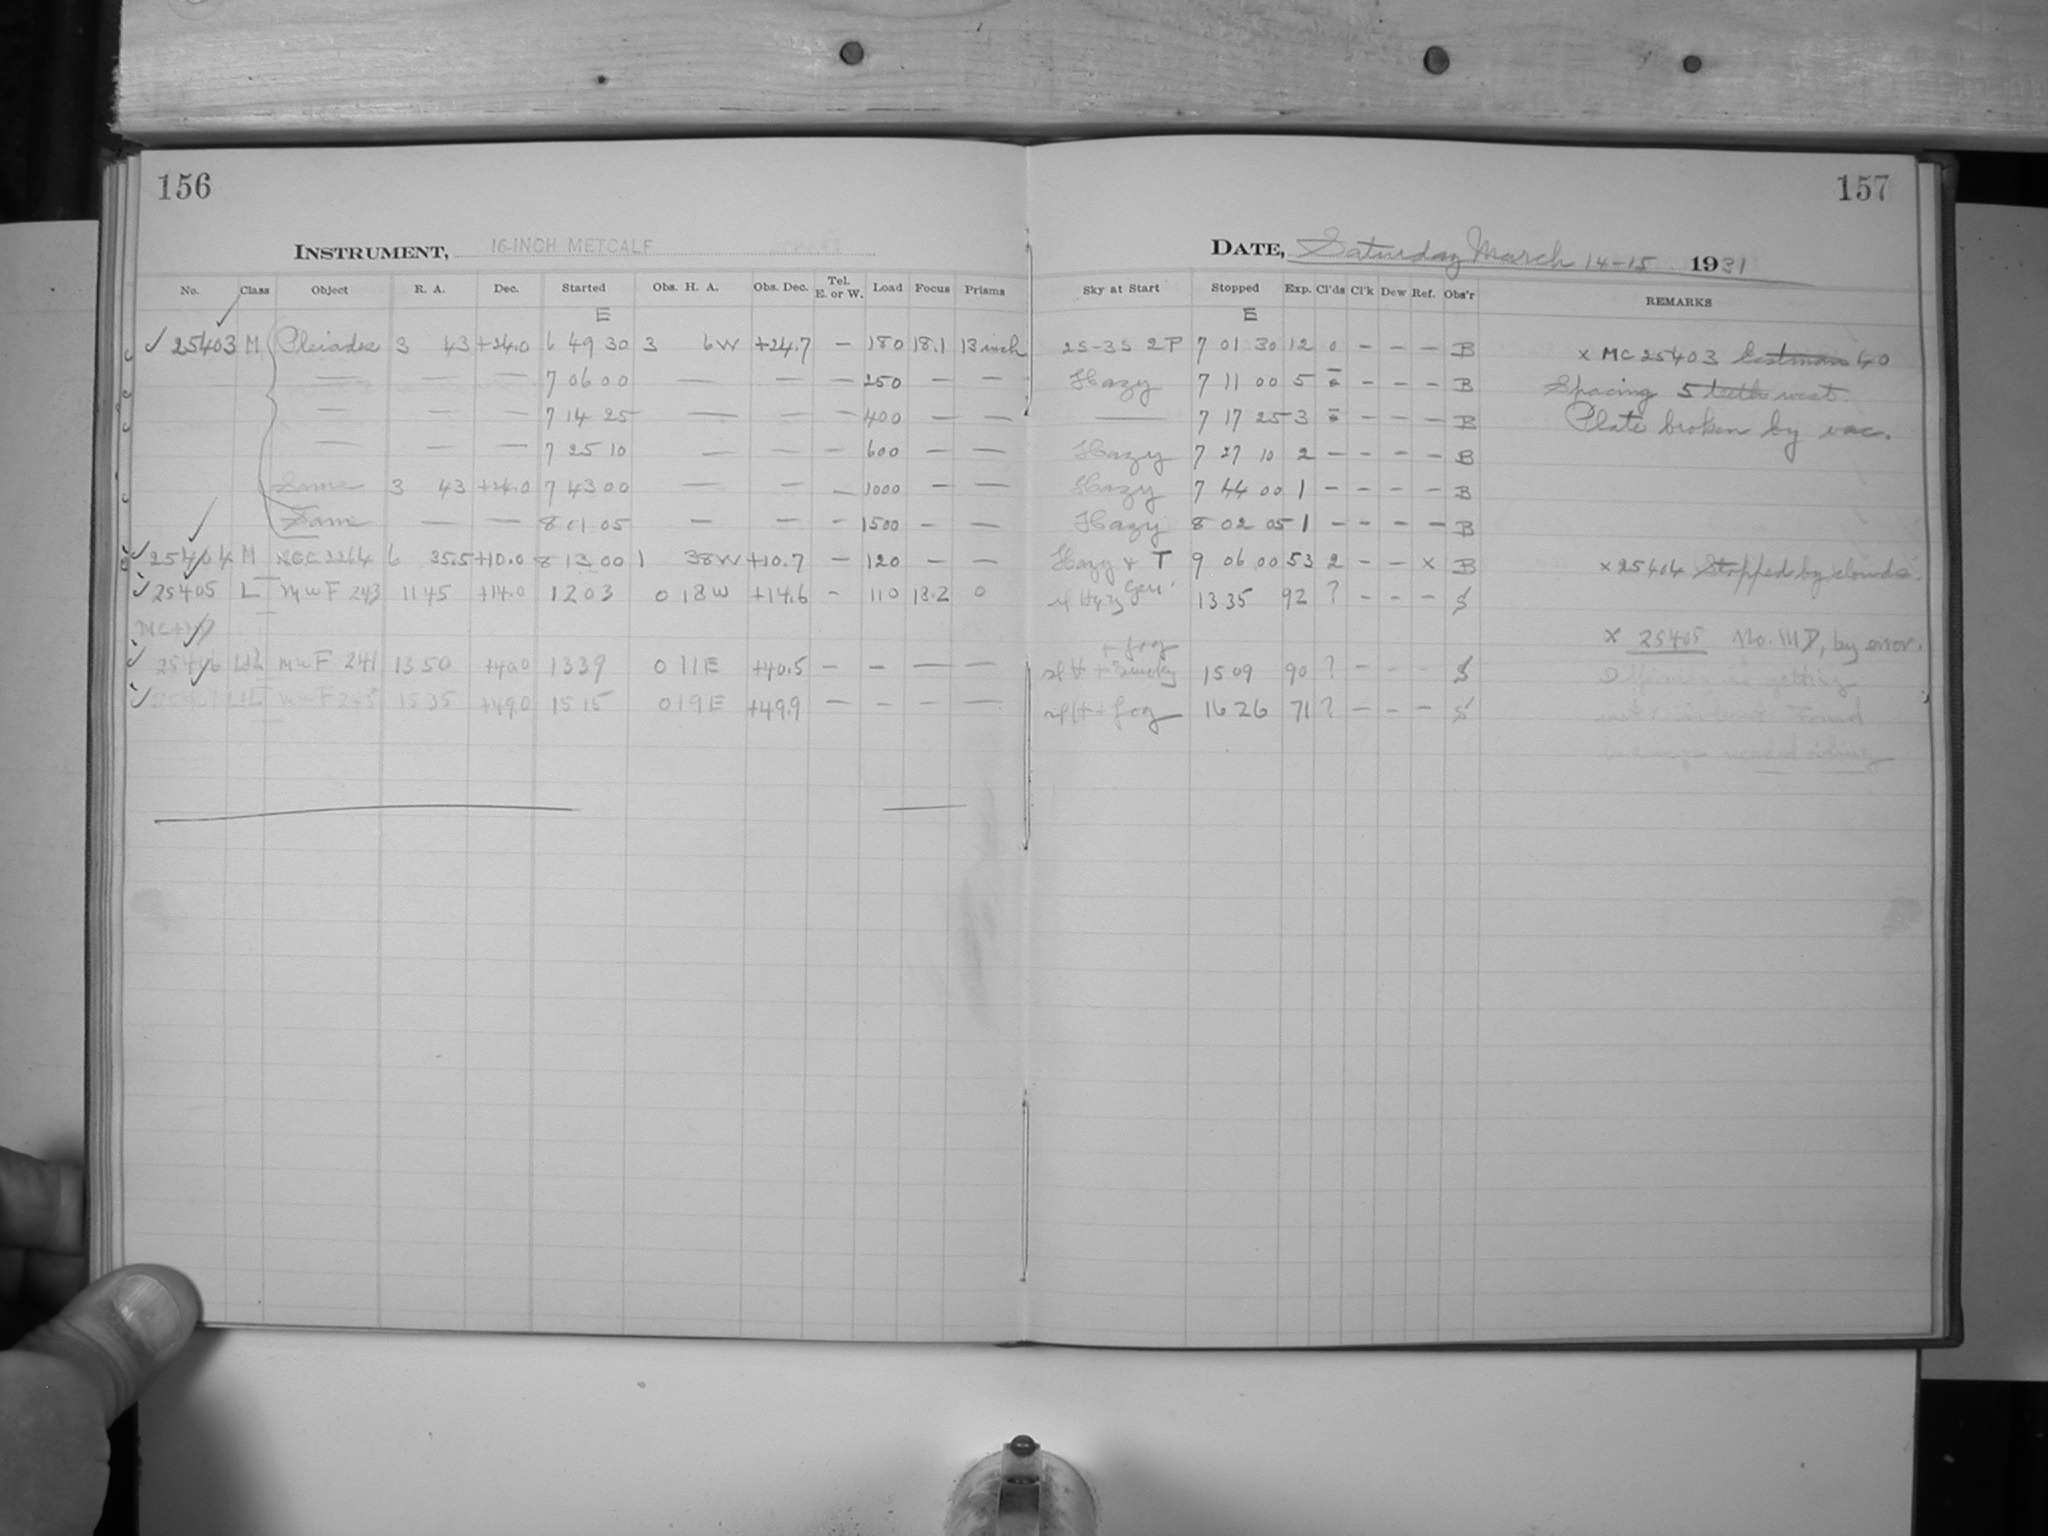 156
157
INSTRUMENT, 16-INCH METCALF
DATE, Saturday March 14-15 1931
No. Class Object R. A. Dec. Started Obs. H. A. Obs. Dec. Tel. E. or W. Load Focus Prisms Sky at Start Stopped Exp. Cl'ds Cl'k Dew Ref. Obs'r REMARKS
E E
✓ 25403 M Pleiades 3 43 +24.0 6 49 30 3 6W +24.7 — 180 18.1 13 inch 2S-3S 2P 7 01 30 12 0 — — — B x MC 25403 Eastman 40
— — — 7 06 00 — — — 250 — — Hazy 7 11 00 5 — — — B Spacing 5 teeth west.
— — — 7 14 25 — — — 400 — — — 7 17 25 3 — — — B Plate broken by vac.
— — — 7 25 10 — — — 600 — — Hazy 7 27 10 2 — — — — B
Same 3 43 +24.0 7 43 00 — — — 1000 — — Hazy 7 44 00 1 — — — — B
Same — — 8 01 05 — — — 1500 — — Hazy 8 02 05 1 — — — — B
✓ 25404 M NGC 2264 6 35.5 +10.0 8 13 00 1 38W +10.7 — 120 — — Hazy & T 9 06 00 53 2 — — x B x 25404 Stopped by clouds.
✓ 25405 L MWF 243 11 45 +14.0 12 03 0 18W +14.6 — 110 18.2 0 sl Hazy 13 35 92 ? — — — S
x 25405 No. 111 D, by error.
+ fog
✓ 25406 MWF 241 13 50 +40.0 13 39 0 11E +40.5 — — — — sl H + Smoky 15 09 90 ? — — — S Difficulty in getting
✓ MWF 245 15 35 +49.0 15 15 0 19E +49.9 — — — — sl H + fog 16 26 71 ? — — — S Found
needed oiling